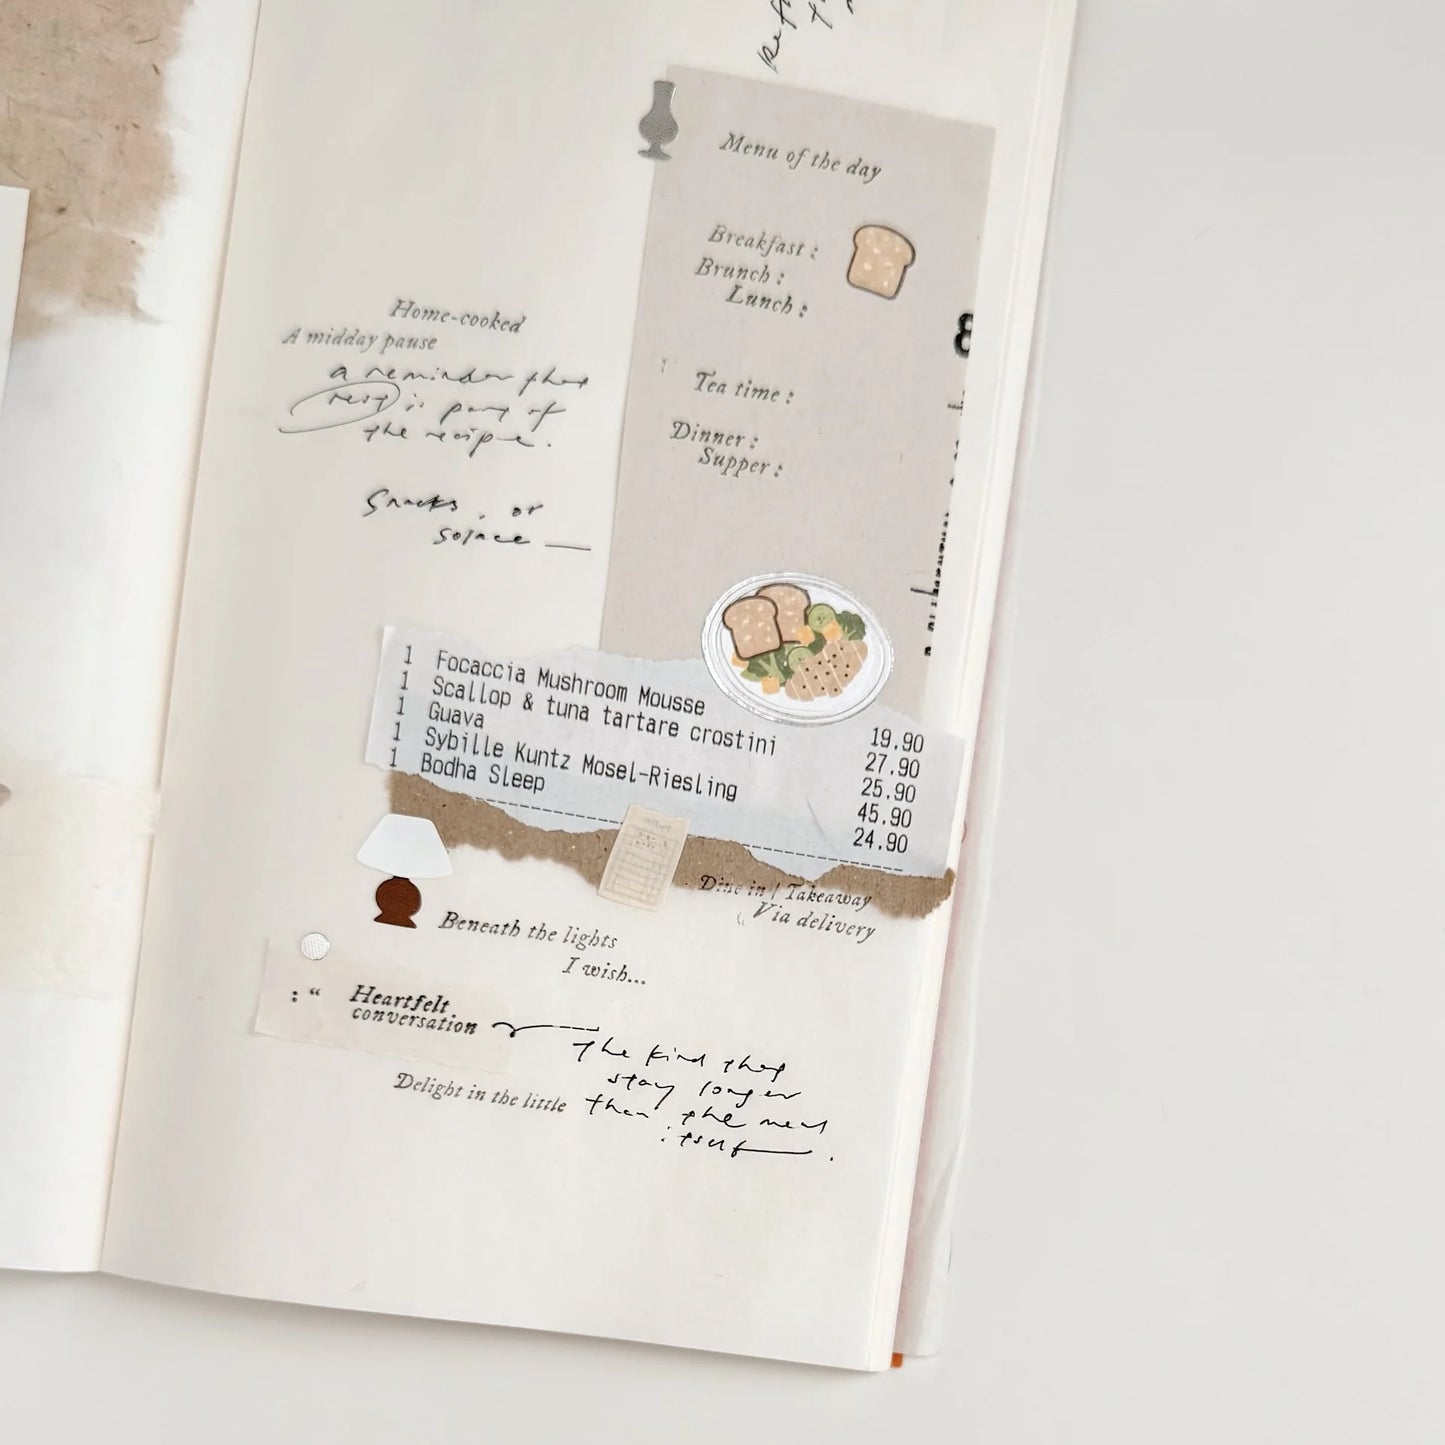 Menu of the day
Breakfast :
Brunch :
Lunch :
Tea time :
Dinner :
Supper :
8
Home-cooked
A midday pause
a reminder that
rest is part of
the recipe.
Snacks, or
solace —
1 Focaccia Mushroom Mousse 19.90
1 Scallop & tuna tartare crostini 27.90
1 Guava 25.90
1 Sybille Kuntz Mosel-Riesling 45.90
1 Bodha Sleep 24.90
Dine in | Takeaway
Via delivery
Beneath the lights
I wish...
: “ Heartfelt
conversation
the kind that
stay longer
than the meal
itself.
Delight in the little